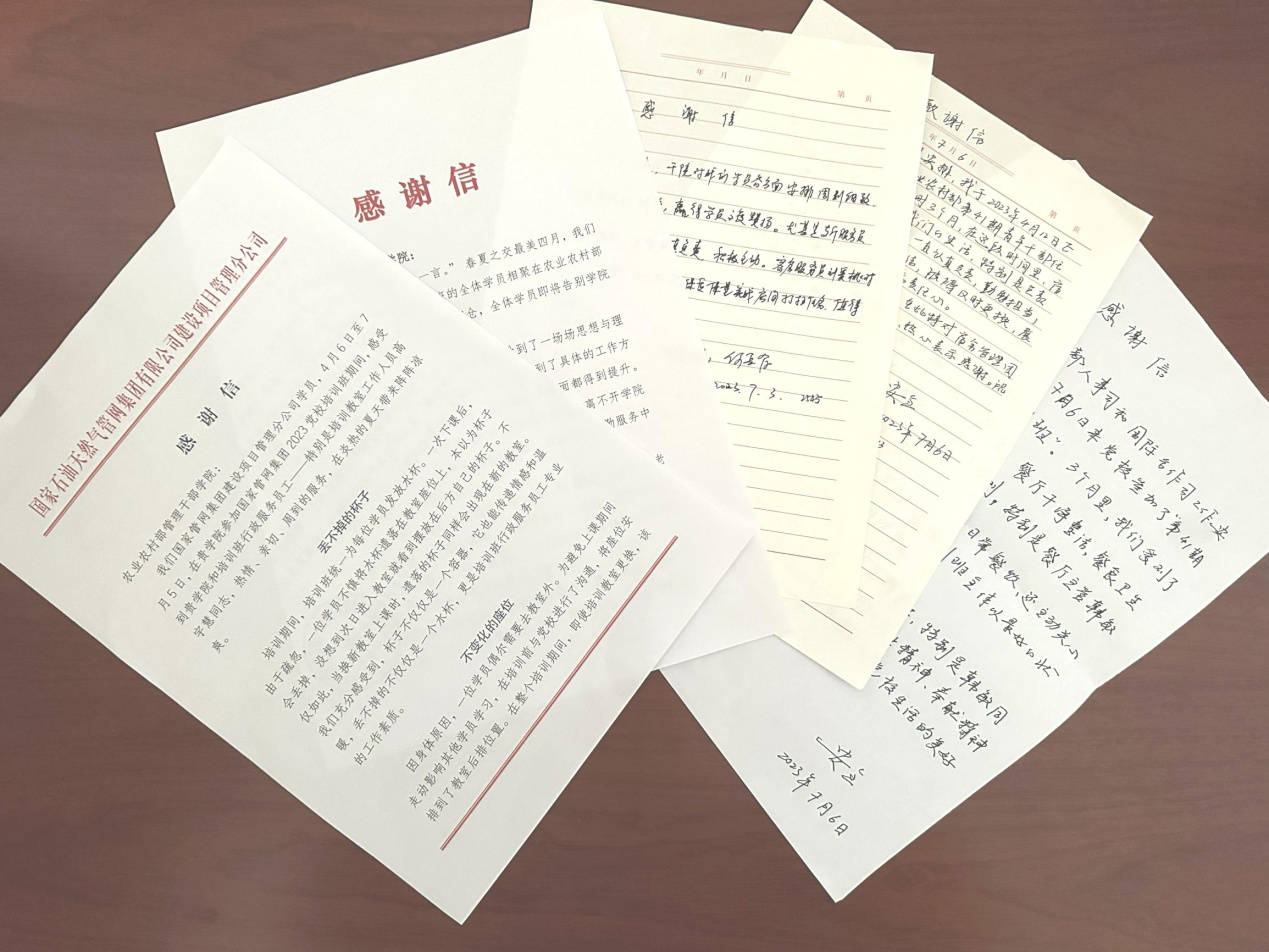 国家石油天然气管网集团有限公司建设项目管理分公司
感 谢 信
农业农村部管理干部学院：
我们国家管网集团建设项目管理分公司学员，4月6日至7
月5日，在贵学院参加国家管网集团2023党校培训班期间，感受
到贵学院和培训班行政服务员工——特别是培训教室工作人员高
宇慧同志，热情、亲切、周到的服务，在炎热的夏天带来阵阵凉
爽。
丢不掉的杯子
培训期间，培训班统一为每位学员发放水杯。一次下课后，
由于疏忽，一位学员不慎将水杯遗落在教室座位上，本以为杯子
会丢掉，没想到次日进入教室就看到摆放在后方自己的杯子。不
仅如此，当换新教室上课时，遗落的杯子同样会出现在新的教室。
我们充分感受到，杯子不仅仅是一个容器，它也能传递情感和温
暖，丢不掉的不仅仅是一个水杯，更是培训班行政服务员工专业
的工作素质。
不变化的座位
因身体原因，一位学员偶尔需要去教室外。为避免上课期间
走动影响其他学员学习，在培训前与党校进行了沟通，将座位安
排到了教室后排位置。在整个培训期间，即使培训教室更换，该
感谢信
学院：
一言。”春夏之交最美四月，我们
班的全体学员相聚在农业农村部
仓，全体学员即将告别学院
到了一场场思想与理
到了具体的工作方
面都得到提升。
离不开学院
服务中
年 月 日
第 页
感 谢 信
干院对昨的学员各方面安排周到细致
赢得学员的赞扬。尤其是
负责，积极主动。
房间打扫
值得
2023.7.3.
致谢信
年7月6日
第 页
安排，我于2023年4月12日
农村部第41期青年干部
时3个月，在这段时间里，
我们的生活，特别是
一直认真负责，勤勉担当，
及时更换，
责任心。
在此特对宿舍管理
热心表示感谢。祝
安立
2023年7月6日
感谢信
部人事司和国际合作司工作安
7月6日来党校参加了“第41期
班”。3个月里，我们受到了
餐厅干净整洁，餐食卫生
特别是餐厅主管韩敏
日常餐饮，还主动关心
班主体以最好的状
特别是韩敏同
精神、奉献精神
生活的美好
安立
2023年7月6日